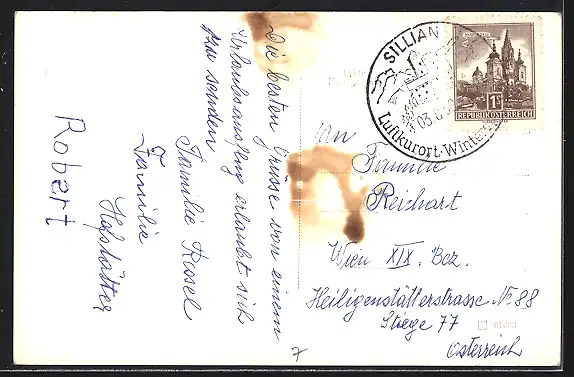 Die besten Grüsse von einem
Urlaubsausflug erlaubt sich
zu senden
Familie Rosel
Familie
Hofstätter
Robert
SILLIAN
03.6
Luftkurort - Winters
1S
REPUBLIK ÖSTERREICH
An
Familie
Reichart
Wien XIX. Bez.
Heiligenstätterstrasse No 88
Stiege 77
Österreich
7